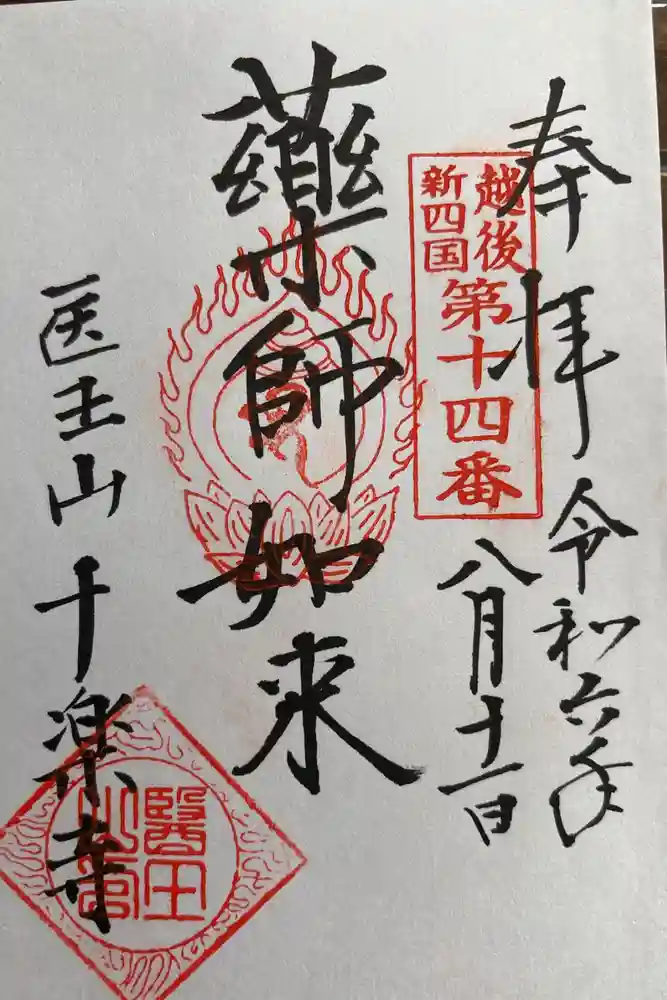 奉拝 令和六年
八月十一日
越後
新四国
第十四番
藥師如来
医王山 十楽寺
醫王